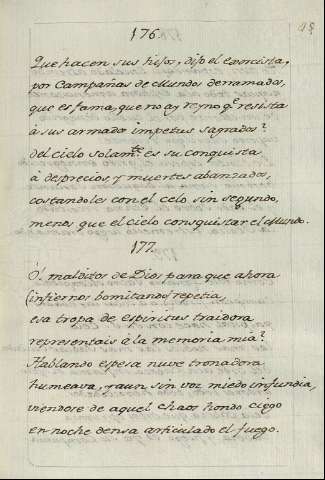 176.
Que hacen sus hijos, dijo el exorcista,
por Campañas de Mundos derramados,
que es fama, que no ay reyno q.e resista
à sus armados impetus sagrados?
del cielo solam.te es su conquista
à desprecios, y muertes abanzados,
costandoles con el celo sin segundo,
menos que el cielo consquistar el Mundo.
177.
O! malditos de Dios para que ahora
(infiernos bomitando) repetia
esa tropa de espiritus traidora
representais à la memoria mia?
Hablando espesa nuve tronadora
humeava, y aun sin voz miedo infundia,
viendose de aquel chaos hondo ciego
en noche densa articulado el fuego.